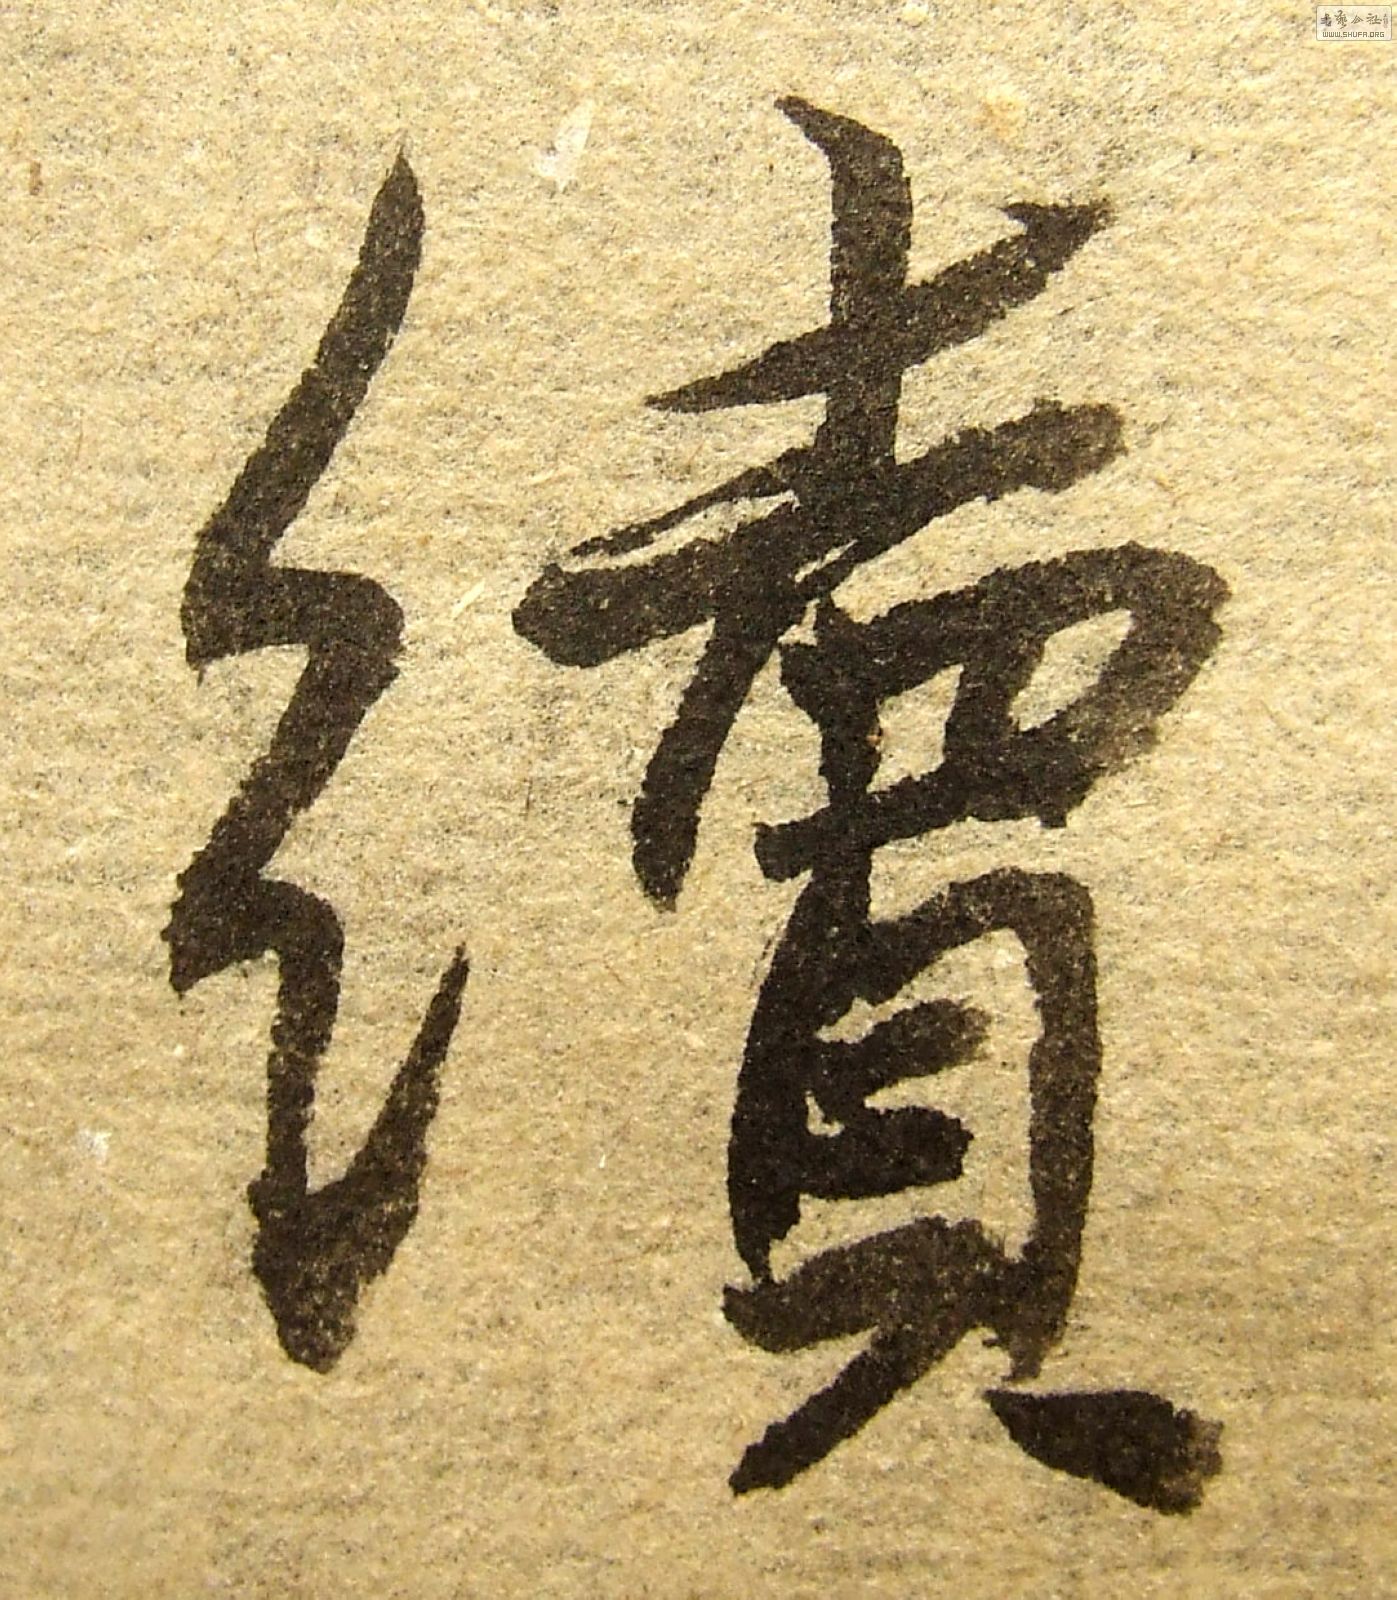 續
书艺公社
WWW.SHUFA.ORG